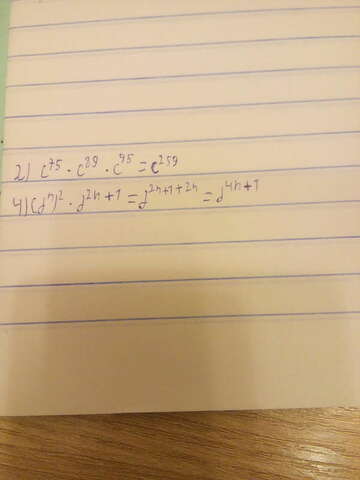 2) c⁷⁵ · c⁸⁹ · c⁹⁵ = c²⁵⁹
4) (f⁴)² · f²ⁿ⁺¹ = f²ⁿ⁺¹⁺²ⁿ = f⁴ⁿ⁺¹